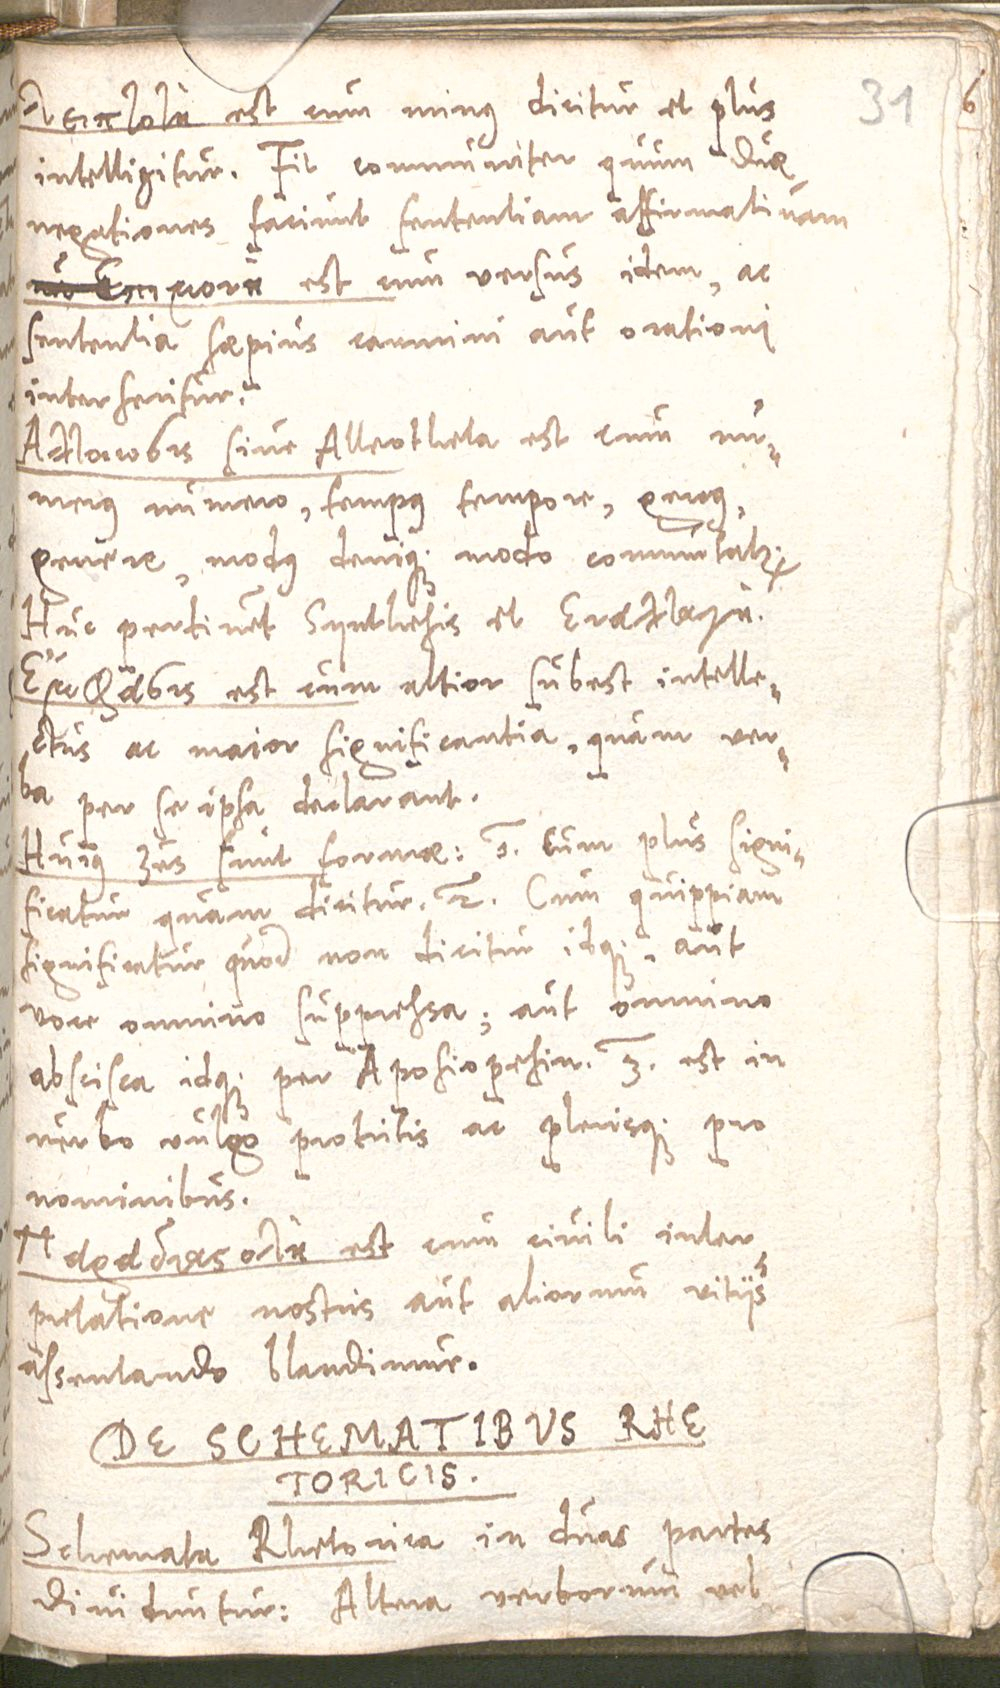 31
6
λειπτότης est cum minꝰ dicitur et plus
intelligitur. Fit communiter quum duæ
negationes faciunt sententiam affirmatiuam
est cum versus idem, ac
sententia sæpius carmini aut orationi
interseritur.
Ἀλλοίωσις siue Alleotheta est cum nu„
merꝰ numero, tempꝰ tempore, genꝰ,
genere, modꝰ deniqꝫ modo commutatꝛ
Huc pertinet Synthesis et Εναλλαγὴ.
Ἔμφασις est cum altior subest intelle„
ctus ac maior significantia, quàm ver„
ba per se ipsa declarant.
Huiꝰ 3es sunt formæ: 1. cùm plus signi„
ficatur quam dicitur. 2. Cum quippiam
significatur quod non dicitur idqꝫ, aut
voce omnino suppressa; aut omnino
abscisca idqꝫ per Aposiopesin. 3. est in
verbo vulgo protritis ac plerisqꝫ pro
nominibus.
Παραδιαστολὴ est cum ciuili inter
pretatione nostris aut aliorum vitijs
assentando blandimur.
DE SCHEMATIBVS RHE
TORICIS.
Schemata Rhetorica in duas partes
diuiduntur: Altera verborum vel